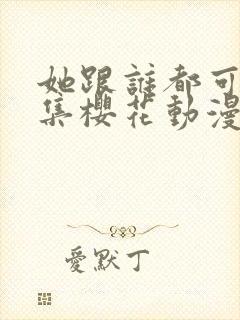 她跟誰都可
集櫻花動漫
愛默丁